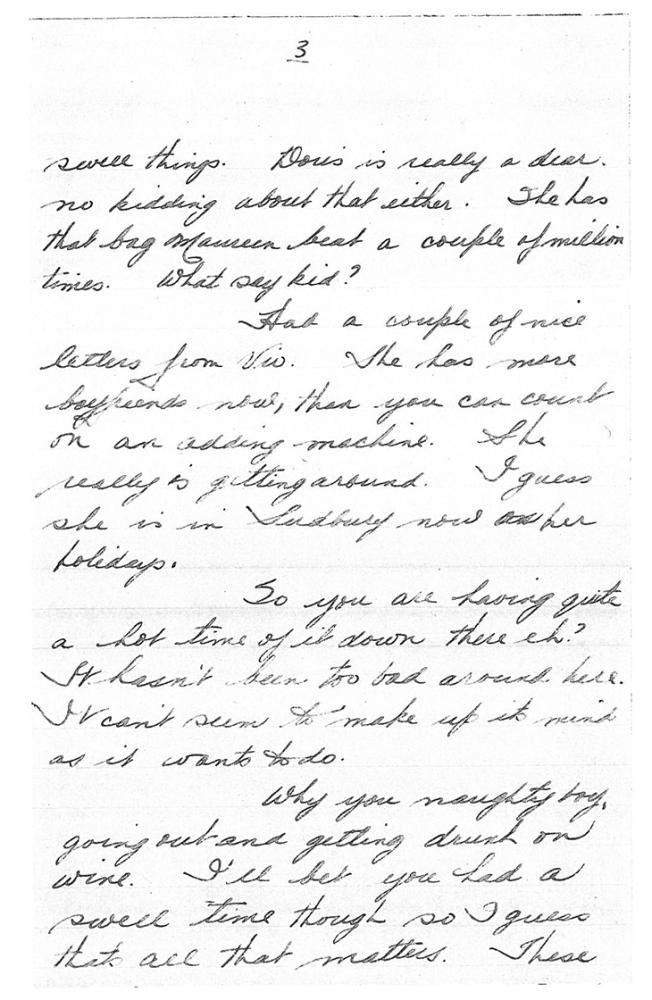 3
swell things. Doris is really a dear.
no kidding about that either. She has
that bag Maureen beat a couple of million
times. What say kid?
Had a couple of nice
letters from Viv. She has more
boyfriends now, than you can count
on an adding machine. She
really is getting around. I guess
she is in Sudbury now on her
holidays.
So you are having quite
a hot time of it down there eh?
It hasn't been too bad around here.
It can't seem to make up its mind
as it wants to do.
Why you naughty boy,
going out and getting drunk on
wine. I'll bet you had a
swell time though so I guess
thats all that matters. These